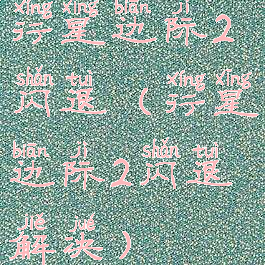 xíng xīng biān jì
行星边际2
shǎn tuì xíng xīng
闪退（行星
biān jì shǎn tuì
边际2闪退
jiě jué
解决）